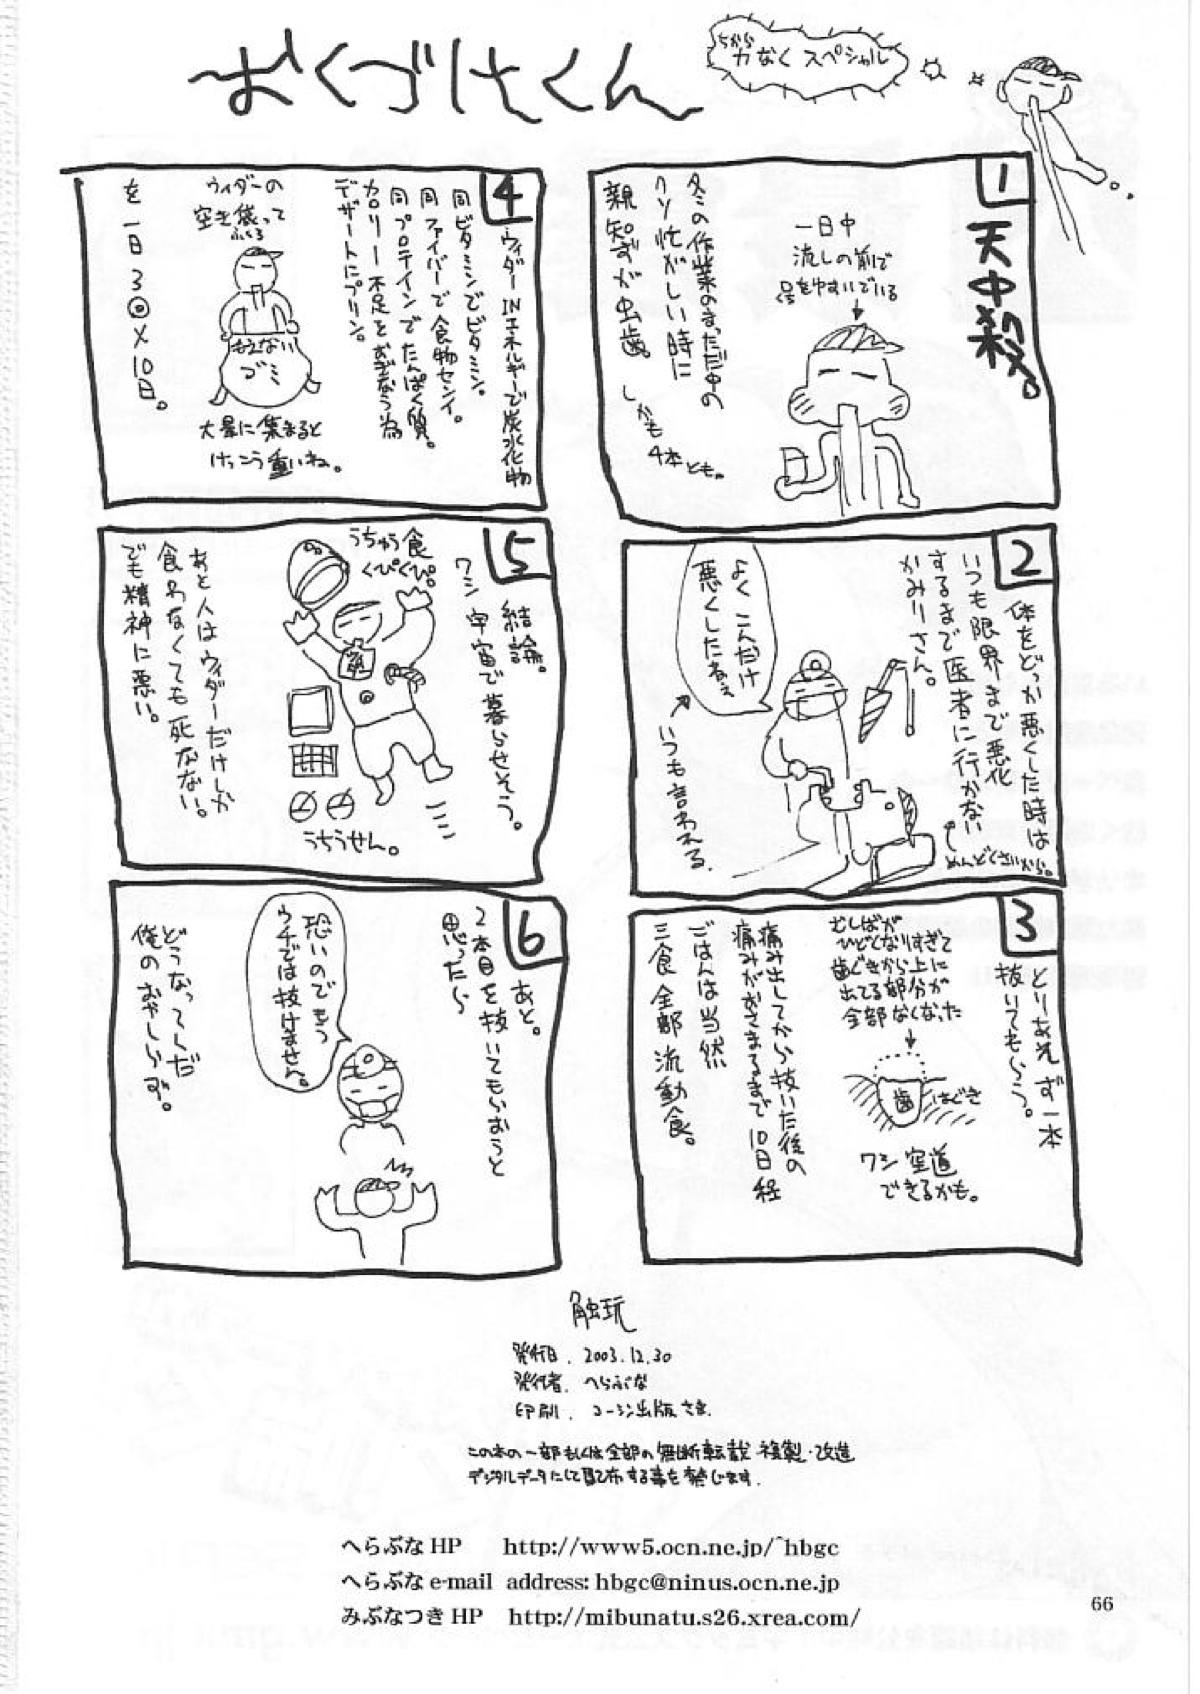 おくづけくん
ちから
力なくスペシャル
1
天中殺。
一日中
流しの前で
口をゆすいでいる
冬の作業のまっただ中の
クソ忙がしい時に
親知らずが虫歯。
しかも
4本とも。
2
体をどっか悪くした時は
いつも限界まで悪化
するまで医者に行かない
かみりさん。
めんどくさいから。
よくこんだけ
悪くしたねぇ
いつも言われる。
3
とりあえず一本
抜いてもらう。
むしばが
ひどくなりすぎて
歯ぐきから上に
出てる部分が
全部なくなった
歯
はぐき
ワシ空道
できるかも。
痛み出してから抜いた後の
痛みがおさまるまで10日経
ごはんは当然
三食全部流動食。
4
ウィダーINエネルギーで炭水化物
同ビタミンでビタミン。
同ファイバーで食物センイ。
同プロテインでたんぱく質。
カロリー不足をおぎなう為
デザートにプリン。
ウィダーの
空き袋って
ふくろ
もえない
ゴミ
大量に集まると
けっこう重いね。
を一日3回×10日。
5
結論。
ワシ宇宙で暮らせそう。
うちゅう食
くぴくぴ。
うちうせん。
あと人はウィダーだけしか
食わなくても死なない。
でも精神に悪い。
6
あと。
2本目を抜いてもらおうと
思ったら
恐いのでもう
ウチでは抜けません。
どうなってんだ
俺のおやしらず。
触玩
発行日. 2003.12.30
発行者. へらぶな
印刷. コーシン出版さま.
この本の一部もしくは全部の無断転載・複製・改造
デジタルデータにして配布する事を禁じます.
へらぶな HP http://www5.ocn.ne.jp/~hbgc
へらぶな e-mail address: hbgc@ninus.ocn.ne.jp
みぶなつき HP http://mibunatu.s26.xrea.com/
66